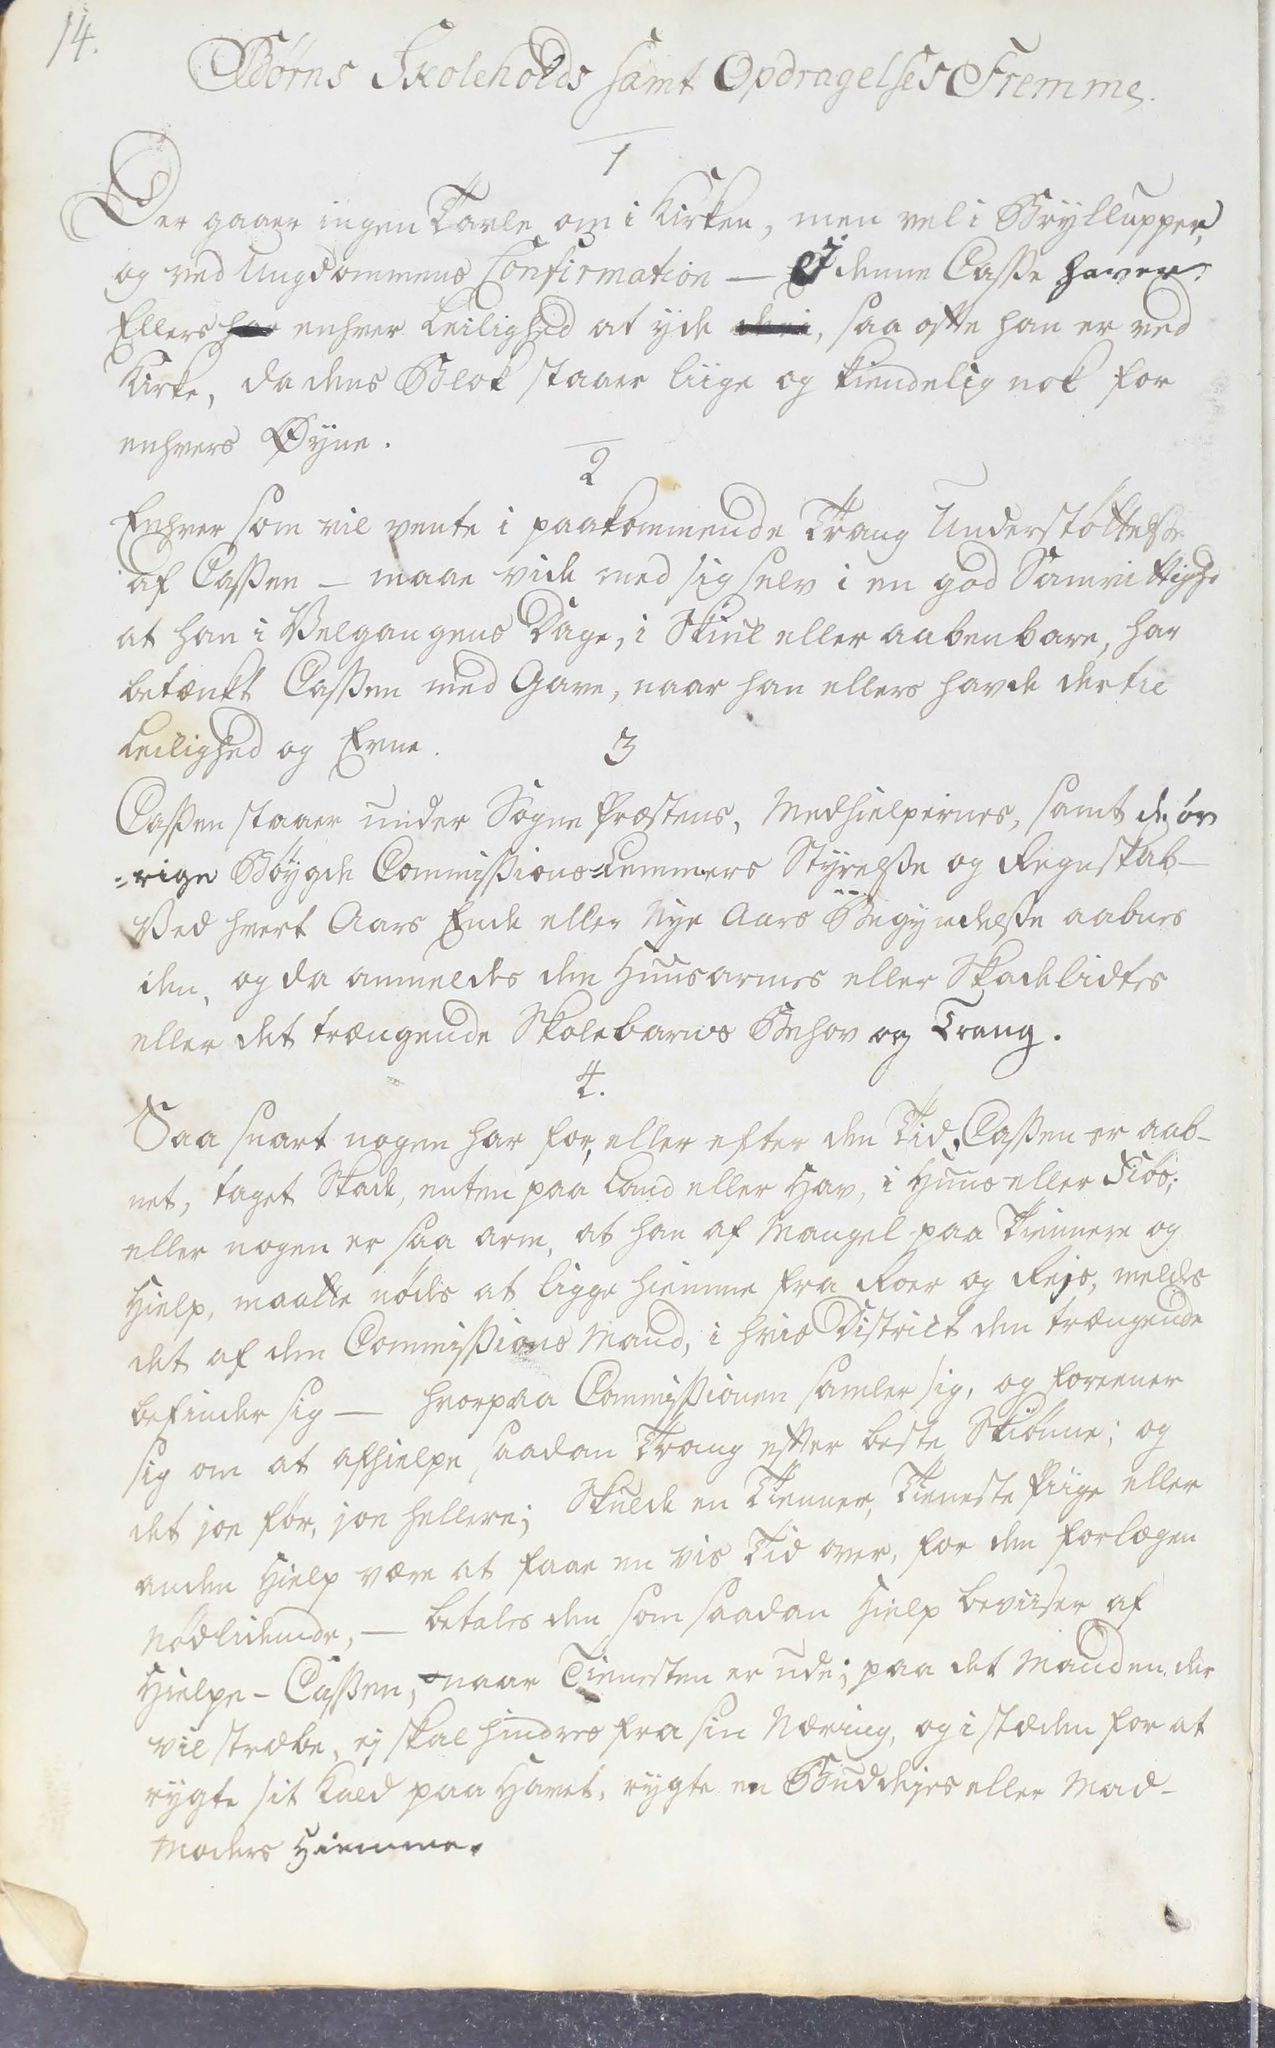 14.
Børns Skoleholds samt Opdragelses Fremme.
1
Der gaaer ingen Tavle om i Kirken, men vel i Bryllupper,
og ved Ungdommens Confirmation — I denne Casse haver
Ellers har enhver Leilighed at yde deri, saa ofte han er ved
Kirke, da dens Blok staaer liige og kiendelig nok for
enhvers Øyne.
2
Enhver som vil vente i paakommende Trang Understøttelse
af Cassen — maae vide med sig selv i en god Samvittighd
at han i Velgangens Dage, i Skiul eller aabenbare, har
betænkt Cassen med Gave, naar han ellers havde dertil
Leilighed og Evne.
3
Cassen staaer under Sogne Præstens, Medhielpernes, samt de øv
=rige Bøygde Commissions=Lemmers Styrelse og Regnskab—
Ved hvert Aars Ende eller Nye Aars Begyndelse aabnes
den, og da anmeldes den Huusarmes eller Skadelidtes
eller det trængende Skolebarns Behov og Trang.
4.
Saa snart nogen har for, eller efter den Tid, Cassen er aab-
net, taget Skade, enten paa Land eller Hav, i Huus eller Fiøs;
eller nogen er saa arm, at han af Mangel paa Tiennere og
Hielp, maatte nødes at ligge hiemme fra Roer og Rejs, meldes
det af den Commissions Mand, i hvis District den trængende
befinder sig — hvorpaa Commissionen samler sig, og foreener
sig om at afhielpe saadan Trang efter beste Skiønne; og
det joe før, joe hellere; Skulde en Tienner, Tieneste Piige eller
anden Hielp være at faae en vis Tid over, for den forlægen
Nødlidende, — betales den som saadan Hielp beviiser af
Hielpe-Cassen, naar Tienesten er ude; paa det Manden der
vil stræbe, ej skal hindres fra sin Næring, og i stæden for at
rygte sit Kald paa Havet, rygte en Buddejes eller Mad-
Moders Hiemme.